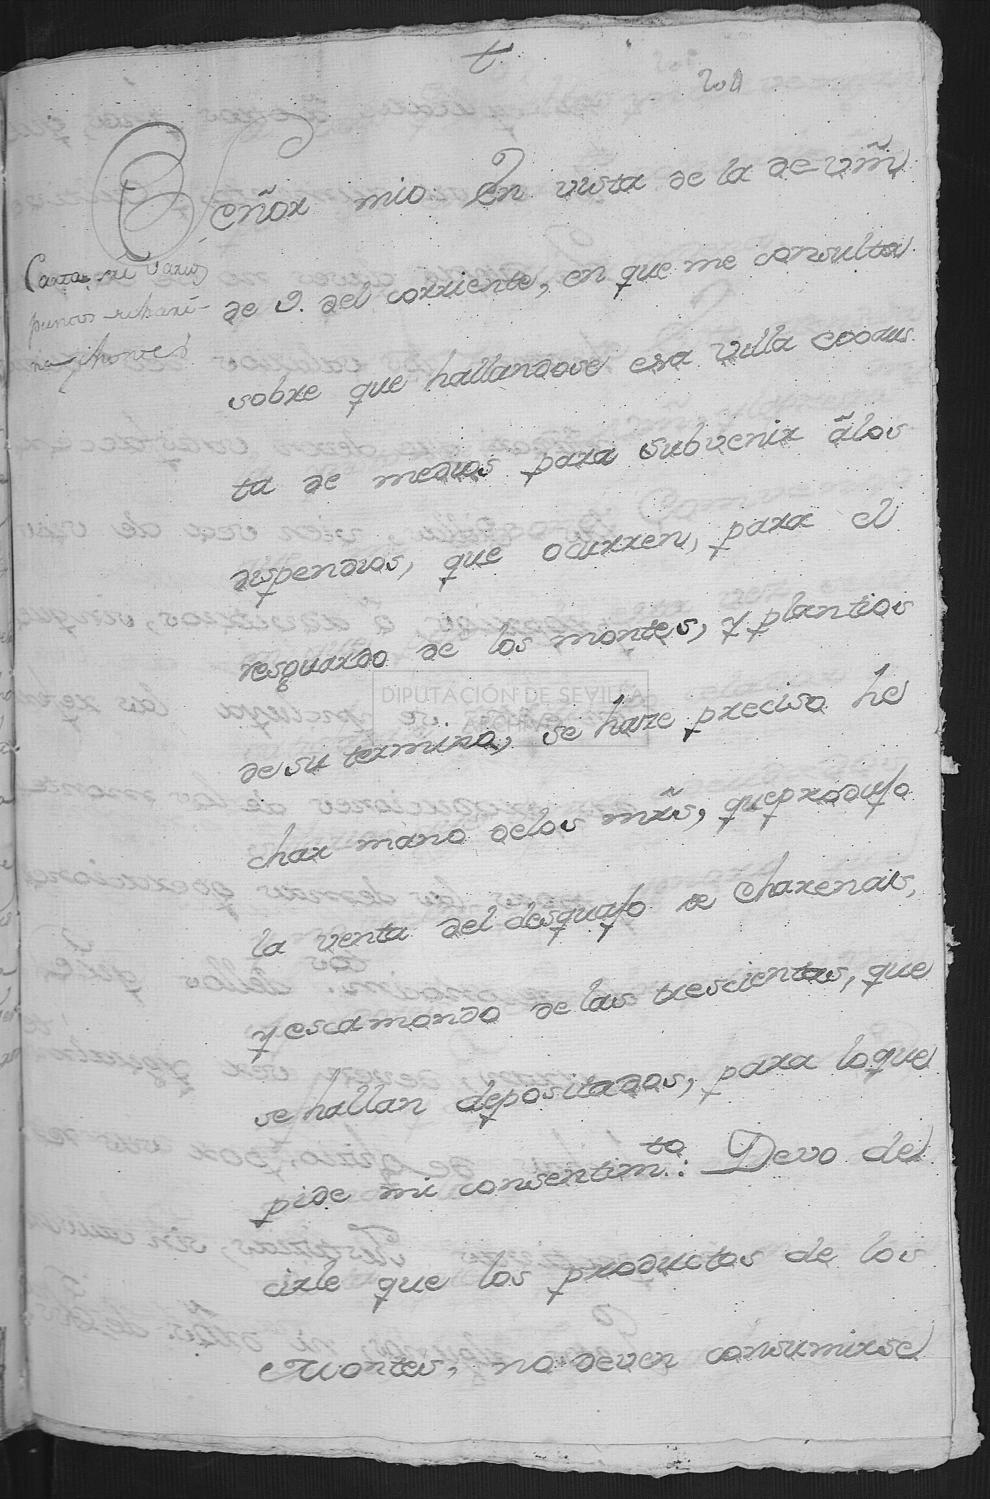 204
Señor mio En vista de la de vm̃
de 9. del corriente, en que me consulta
sobre que hallandose esa Villa exaus
ta de medios para subvenir âlos
dispendios, que ocurren, para el
resguardo de los montes, y plantios
de su termino, se haze preciso he
char mano delos mrs̃, queprodujo
la venta del desquajo de Charenas,
y escamondo de las trescientas, que
se hallan depositados, para loque
pide mi consentimto: Devo de
cirle que los productos de los
Montes, no deven consumirse
Carta sre varios
puntos
Montes
DIPUTACIÓN DE SEVILLA